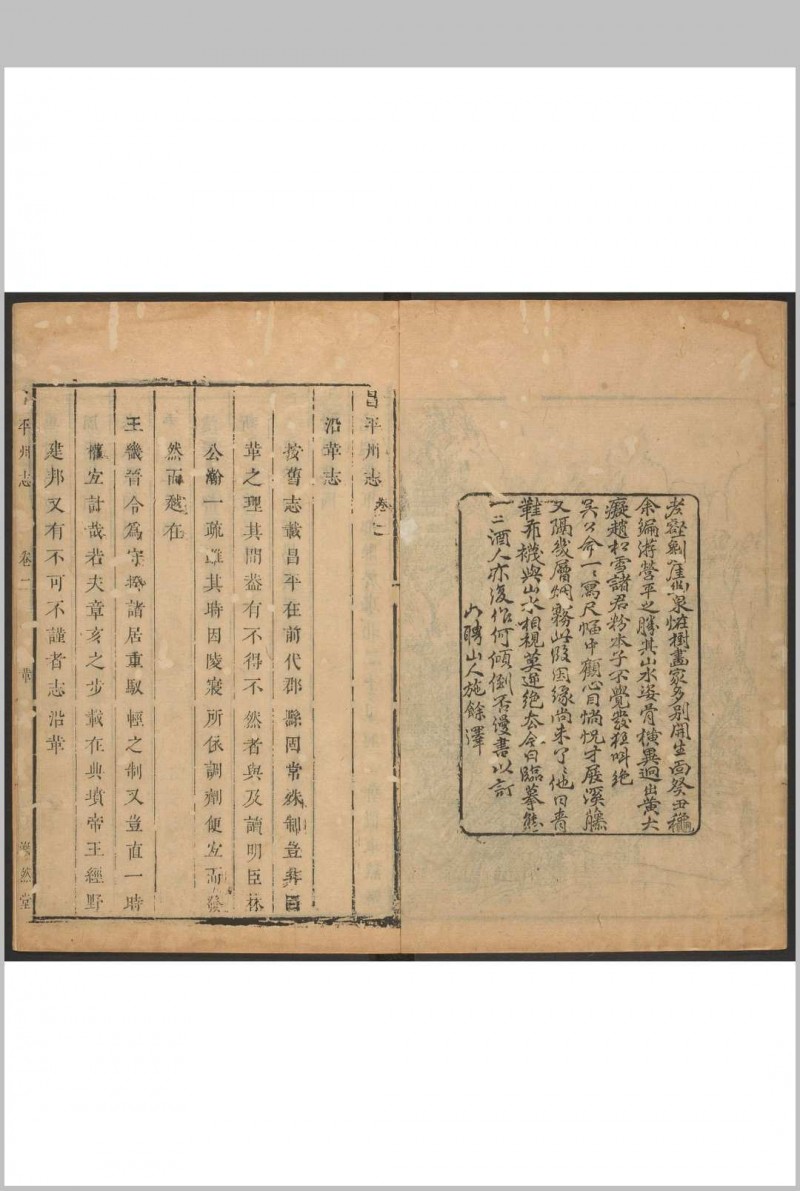 老壑劖崖懸泉怪樹畫家多別開生面癸丑穐
余編游營平之勝其山水姿骨橫異迥出黄大
癡趙松雪諸君粉本子不覺發狂叫絕
吳公命一一寫尺幅中顧心目惝怳才展溪藤
又隔幾層烟霧此段因緣尚未了了他日青
鞋布襪與山水相視莫逆絕去今日臨摹態
一二酒人亦復作何傾倒否漫書以訂
山聘山人施餘澤
昌平州志 卷之
沿革志
按舊志載昌平在前代郡縣固常殊制豈非因
革之理其間益有不得不然者與及讀明臣林
公瀚一疏雖其時因陵寢所係調劑便宜而發
然而越在
王畿晉令為守撫諸居重馭輕之制又豈直一時
權宜計哉若夫章亥之步載在典墳帝王經野
建邦又有不可不謹者志沿革
平州志 卷二 革 澹然堂